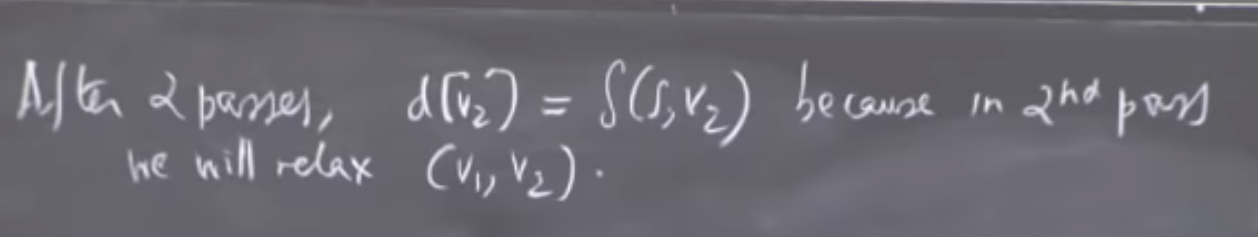 After 2 passes, d[v₂] = δ(s, v₂) because in 2nd pass
we will relax (v₁, v₂).